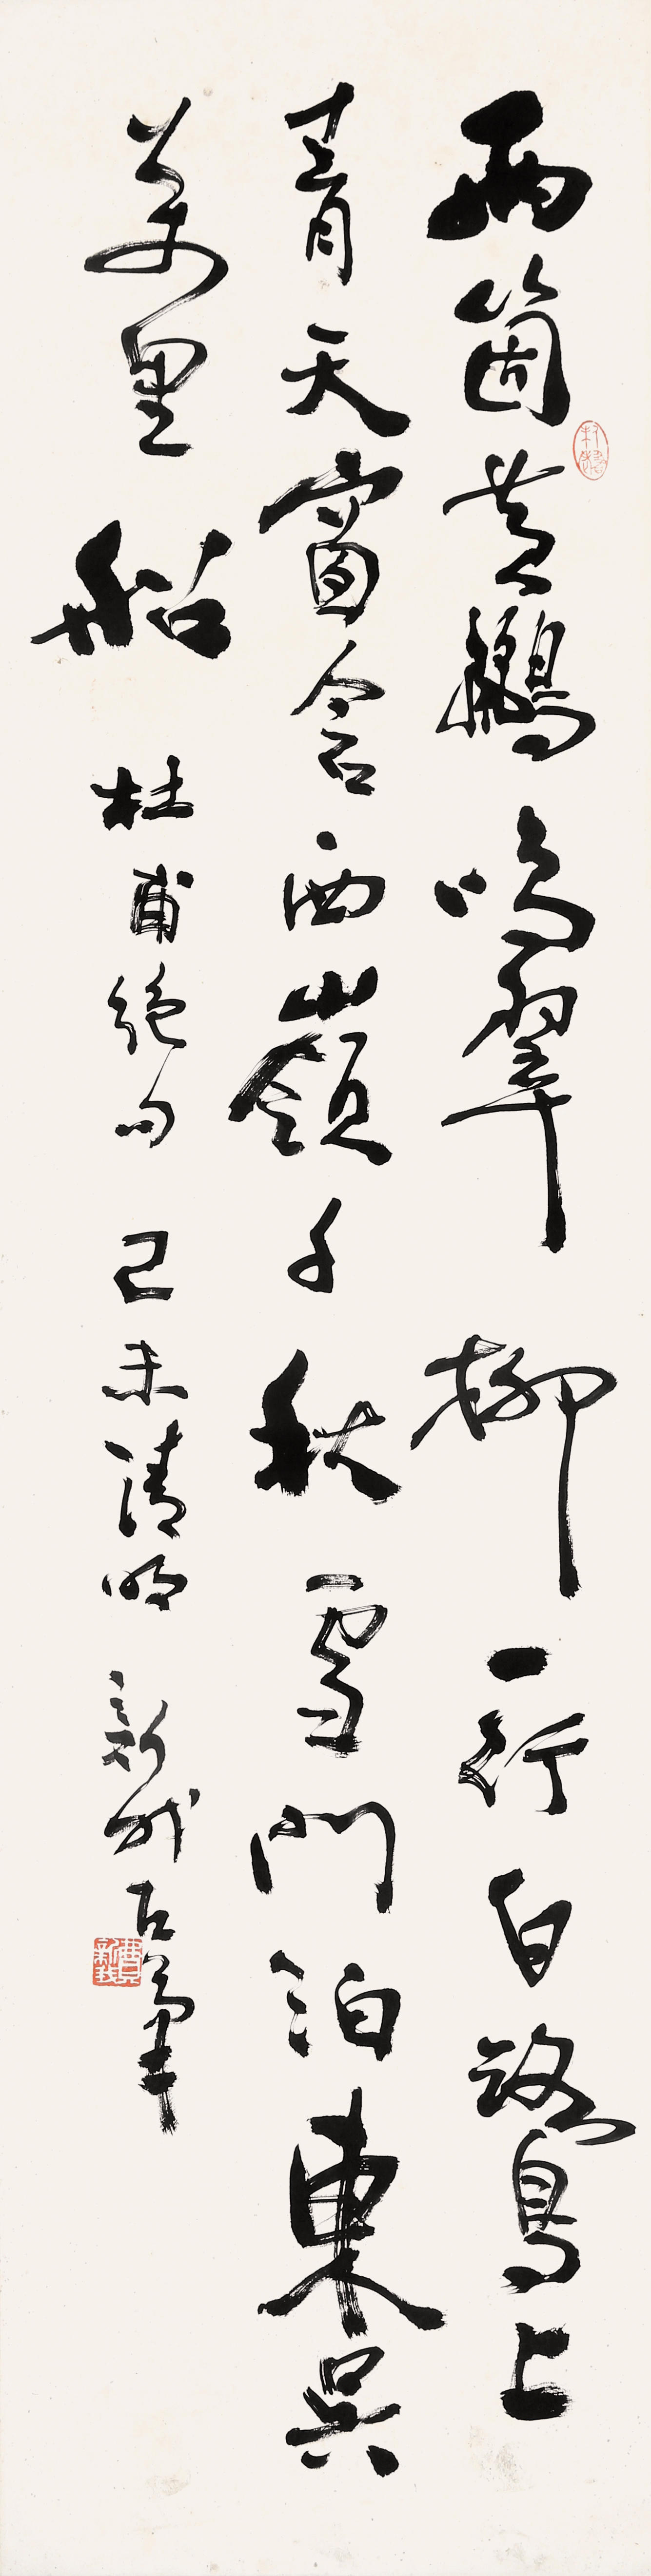 兩箇黃鸝鳴翠柳一行白鷺上
青天窗含西嶺千秋雪門泊東吳
萬里船 杜甫絕句 己未清明 新我左筆
費新我